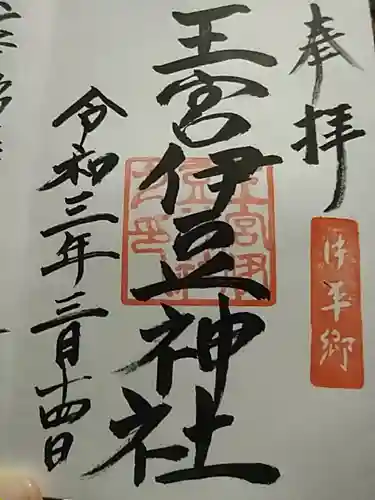 奉拝
伊平郷
王宮伊豆神社
令和三年三月十四日